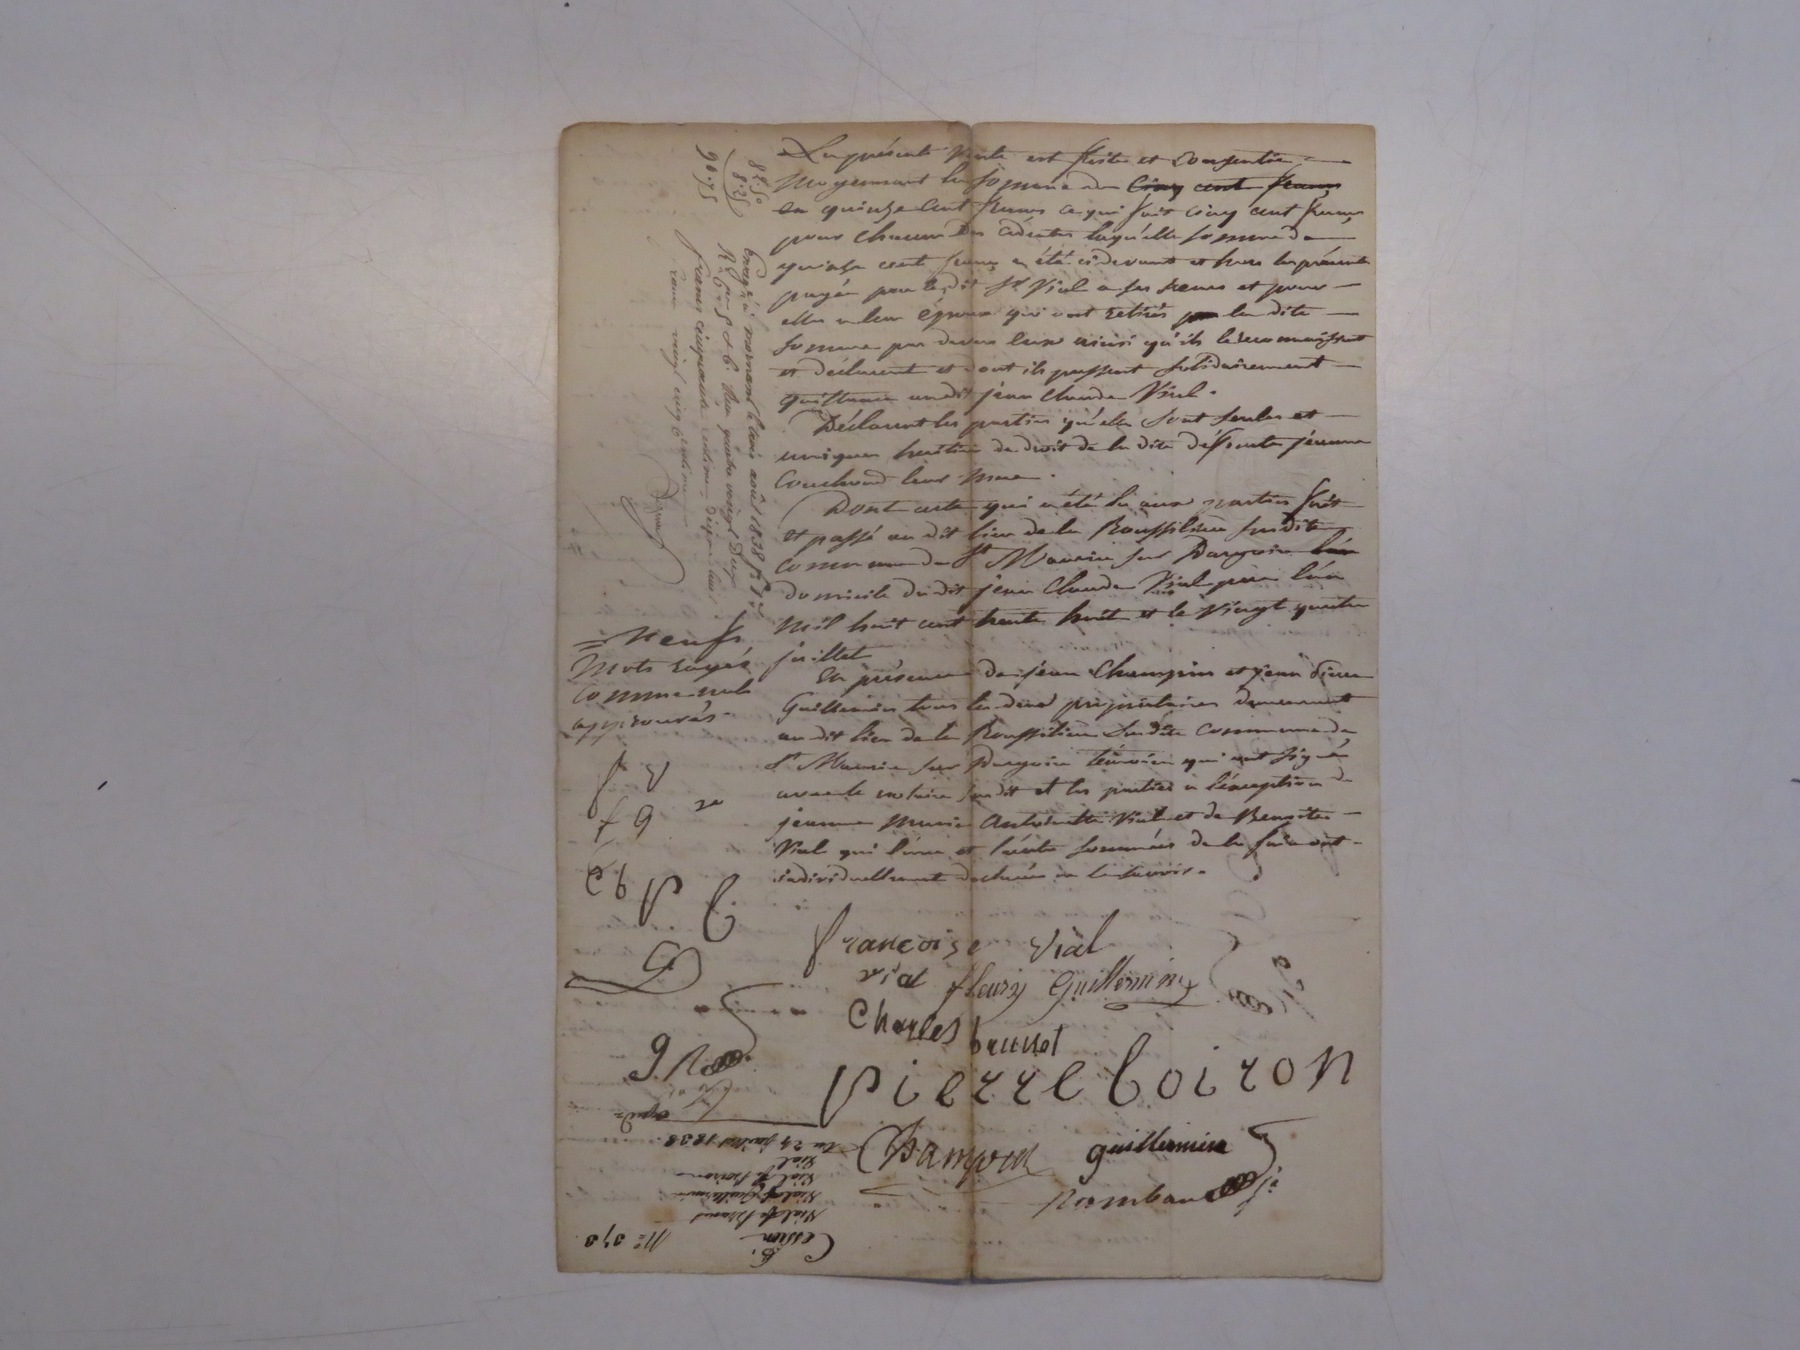 La présente Vente est faite et Consentie
Moyennant la somme de Cinq cent francs
en quinze cent francs ce qui fait cinq cent francs
pour chacun des cédantes laquelle somme de
quinze cent francs a été cidevant et hors les présente
payée par le dit St Vial a ses sœurs et pour
elles a leur époux qui ont retirés la dite
somme par devers eux ainsi qu'ils le reconnaissent
et déclarent et dont ils passent solidairement
quittance audit jean Claude Vial.
Déclarent les parties qu'elles sont seules et
uniques héritiers de droit de la dite déffunte jeanne
Couchoud leur mère.
Dont acte qui a été lu aux parties fait
et passé au dit lieu de la Roussilière susdite
commune de St Maurice sur Dargoire
domicile dudit jean Claude Vial l'an
Mil huit cent trente huit et le Vingt quatre
juillet
En présence de jean Champin et jean Pierre
Guillermin tous les deux propriétaires demeurant
au dit lieu de la Roussilière susdite Commune de
St Maurice sur Dargoire témoins qui ont signé
avec le notaire susdit et les parties a l'exception de
jeanne Marie Antoinette Vial et de Benoite
Vial qui l'une et l'autre sommées de le faire ont
individuellement déclarées ne le savoir.
82.50
8.25
90.75
Enregistré à mornant le trois août 1838 fo
R. quatre vingt Deux
francs cinquante centimes, dixième huit
francs vingt cinq centimes
Neuf
Mots rayés
comme nuls
approuvés
f v
f G
P C
G
J R
francoise vial
vial fleury Guillermin
Charles brunet
Pierre boiron
Champin guillermin
Rambaud
Du 24 juillet 1838
Vial
Vial fe Boiron
Vial fe Guillermin
Vial fe Brunet
Cession
No 378